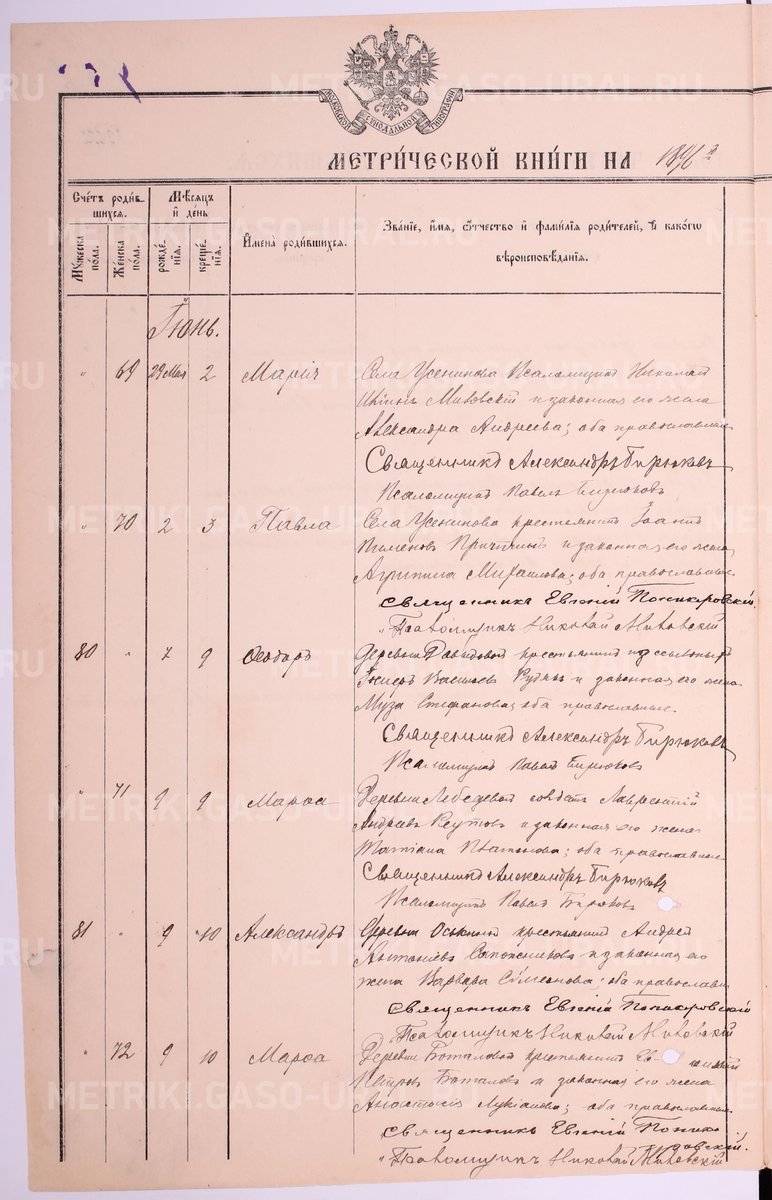 МОСКОВСКОЙ СѴНОДАЛЬНОЙ ТИПОГРАФІИ
МЕТРИ́ЧЕСКОЙ КНИ́ГИ НА 1896 г
Сче́тъ роди́в-
шихся.
Мѣ́сяцъ
и҆ де́нь
И҆мена̀ роди́вшихся.
Зва́ніе, и҆́мя, ѻ҆́тчество и҆ фами́лія роди́телей, и҆ како́гѡ
вѣроисповѣ́данія.
Мꙋ́жеска по́ла.
Же́нска по́ла.
рожде́-нія.
креще́-нія.
Іюнь.
" 69 29 Мая 2 Марія Села Усенинова Псаломщикъ Николай
Миловскій и законная его жена
Александра Андреева; оба православные
Священникъ Александръ Бирюковъ
Псаломщикъ Павелъ Бирюковъ
" 70 2 3 Павла Села Усенинова крестьянинъ Іоаннъ
Пименовъ и законная его жена
Агрипина Михаилова; оба православные.
Священникъ Евгеній Поникаровскій.
Псаломщикъ Николай Миловскій
80 " 7 9 Ѳеодоръ Деревни Давыдовой крестьянинъ изъ ссыльныхъ
Васильевъ и законная его жена
Муза Стефанова; оба православные.
Священникъ Александръ Бирюковъ
Псаломщикъ Павелъ Бирюковъ
" 71 9 9 Марѳа Деревни Лебедевой солдатъ Лаврентій
Андреевъ Реутовъ и законная его жена
Татіана Платонова; оба православные
Священникъ Александръ Бирюковъ
Псаломщикъ Павелъ Бирюковъ
81 " 9 10 Александръ Деревни крестьянинъ Андрей
Антоніевъ Сапожниковъ и законная его
жена Варвара Сѵмеонова; оба православн
Священникъ Евгеній Поникаровскій
Псаломщикъ Николай Миловскій
" 72 9 10 Марѳа Деревни Боталовой крестьянинъ
Петровъ Боталовъ и законная его жена
Анастасія Лукіанова; оба православные.
Священникъ Евгеній Поника-
ровскій.
Псаломщикъ Николай Миловскій
METRIKI.GASO-URAL.RU